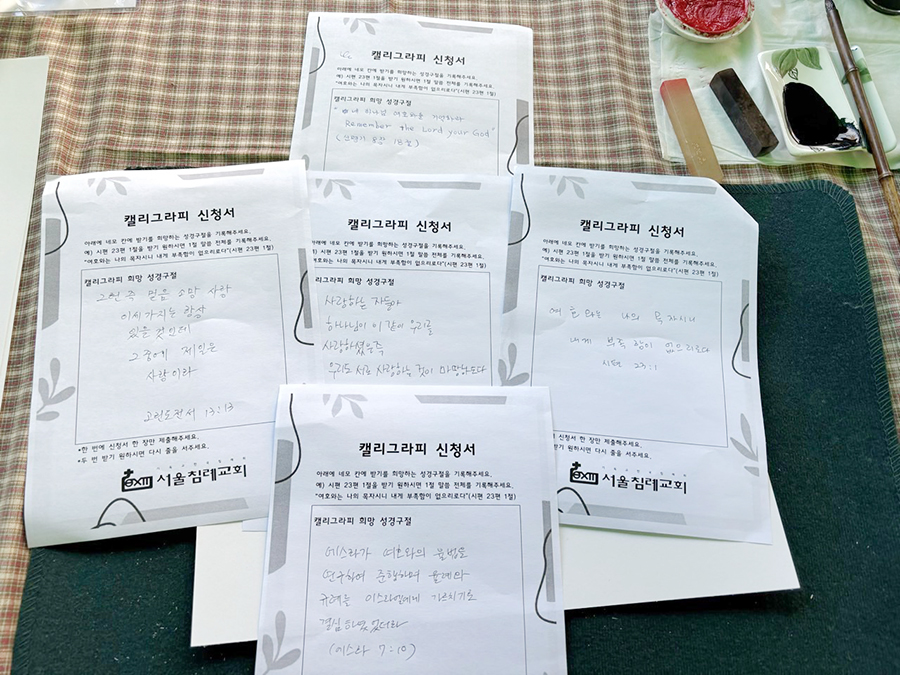 캘리그라피 신청서
아래에 네모 칸에 받기를 희망하는 성경구절을 기록해주세요.
예) 시편 23편 1절을 받기 원하시면 1절 말씀 전체를 기록해주세요.
"여호와는 나의 목자시니 내게 부족함이 없으리로다"(시편 23편 1절)
캘리그라피 희망 성경구절
네 하나님 여호와를 기억하라
Remember the Lord your God"
18절)
캘리그라피 신청서
아래에 네모 칸에 받기를 희망하는 성경구절을 기록해주세요.
예) 시편 23편 1절을 받기 원하시면 1절 말씀 전체를 기록해주세요.
"여호와는 나의 목자시니 내게 부족함이 없으리로다"(시편 23편 1절)
캘리그라피 희망 성경구절
그런 즉 믿음 소망 사랑
이 세 가지는 항상
있을 것인데
그 중에 제일은
사랑이라
고린도전서 13:13
*한 번에 신청서 한 장만 제출해주세요.
*두 번 받기 원하시면 다시 줄을 서주세요.
서울침례교회
캘리그라피 신청서
아래에 네모 칸에 받기를 희망하는 성경구절을 기록해주세요.
예) 시편 23편 1절을 받기 원하시면 1절 말씀 전체를 기록해주세요.
"여호와는 나의 목자시니 내게 부족함이 없으리로다"(시편 23편 1절)
리그라피 희망 성경구절
사랑하는 자들아
하나님이 이같이 우리를
사랑하셨은즉
우리도 서로 사랑하는 것이 마땅하도다
캘리그라피 신청서
아래에 네모 칸에 받기를 희망하는 성경구절을 기록해주세요.
예) 시편 23편 1절을 받기 원하시면 1절 말씀 전체를 기록해주세요.
"여호와는 나의 목자시니 내게 부족함이 없으리로다"(시편 23편 1절)
캘리그라피 희망 성경구절
여호와는 나의 목자시니
내게 부족함이 없으리로다
시편 23:1
신청서 한 장만 제출해주세요.
받기 원하시면 다시 줄을 서주세요.
서울침례교회
캘리그라피 신청서
아래에 네모 칸에 받기를 희망하는 성경구절을 기록해주세요.
예) 시편 23편 1절을 받기 원하시면 1절 말씀 전체를 기록해주세요.
"여호와는 나의 목자시니 내게 부족함이 없으리로다"(시편 23편 1절)
캘리그라피 희망 성경구절
에스라가 여호와의 율법을
연구하여 준행하며 율례와
규례를 이스라엘에게 가르치기로
결심하였었더라
(에스라 7:10)